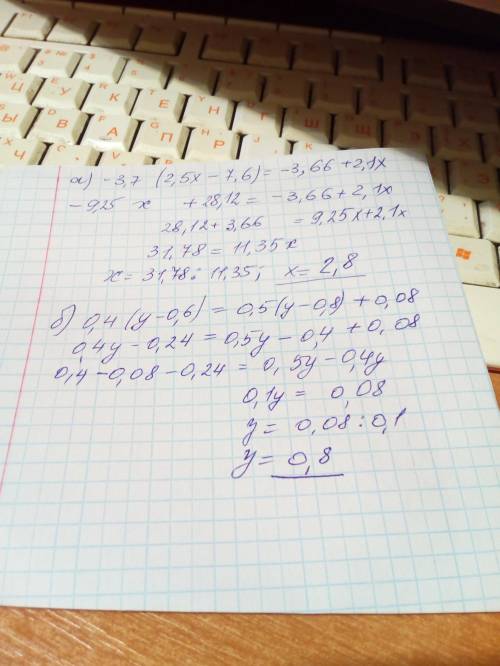 а) -3,7 (2,5х - 7,6) = -3,66 + 2,1х
- 9,25 х + 28,12 = -3,66 + 2,1х
28,12 + 3,66 = 9,25х + 2,1х
31,78 = 11,35х
х = 31,78 : 11,35; х = 2,8
б) 0,4 (у - 0,6) = 0,5 (у - 0,8) + 0,08
0,4у - 0,24 = 0,5у - 0,4 + 0,08
0,4 - 0,08 - 0,24 = 0,5у - 0,4у
0,1у = 0,08
у = 0,08 : 0,1
у = 0,8